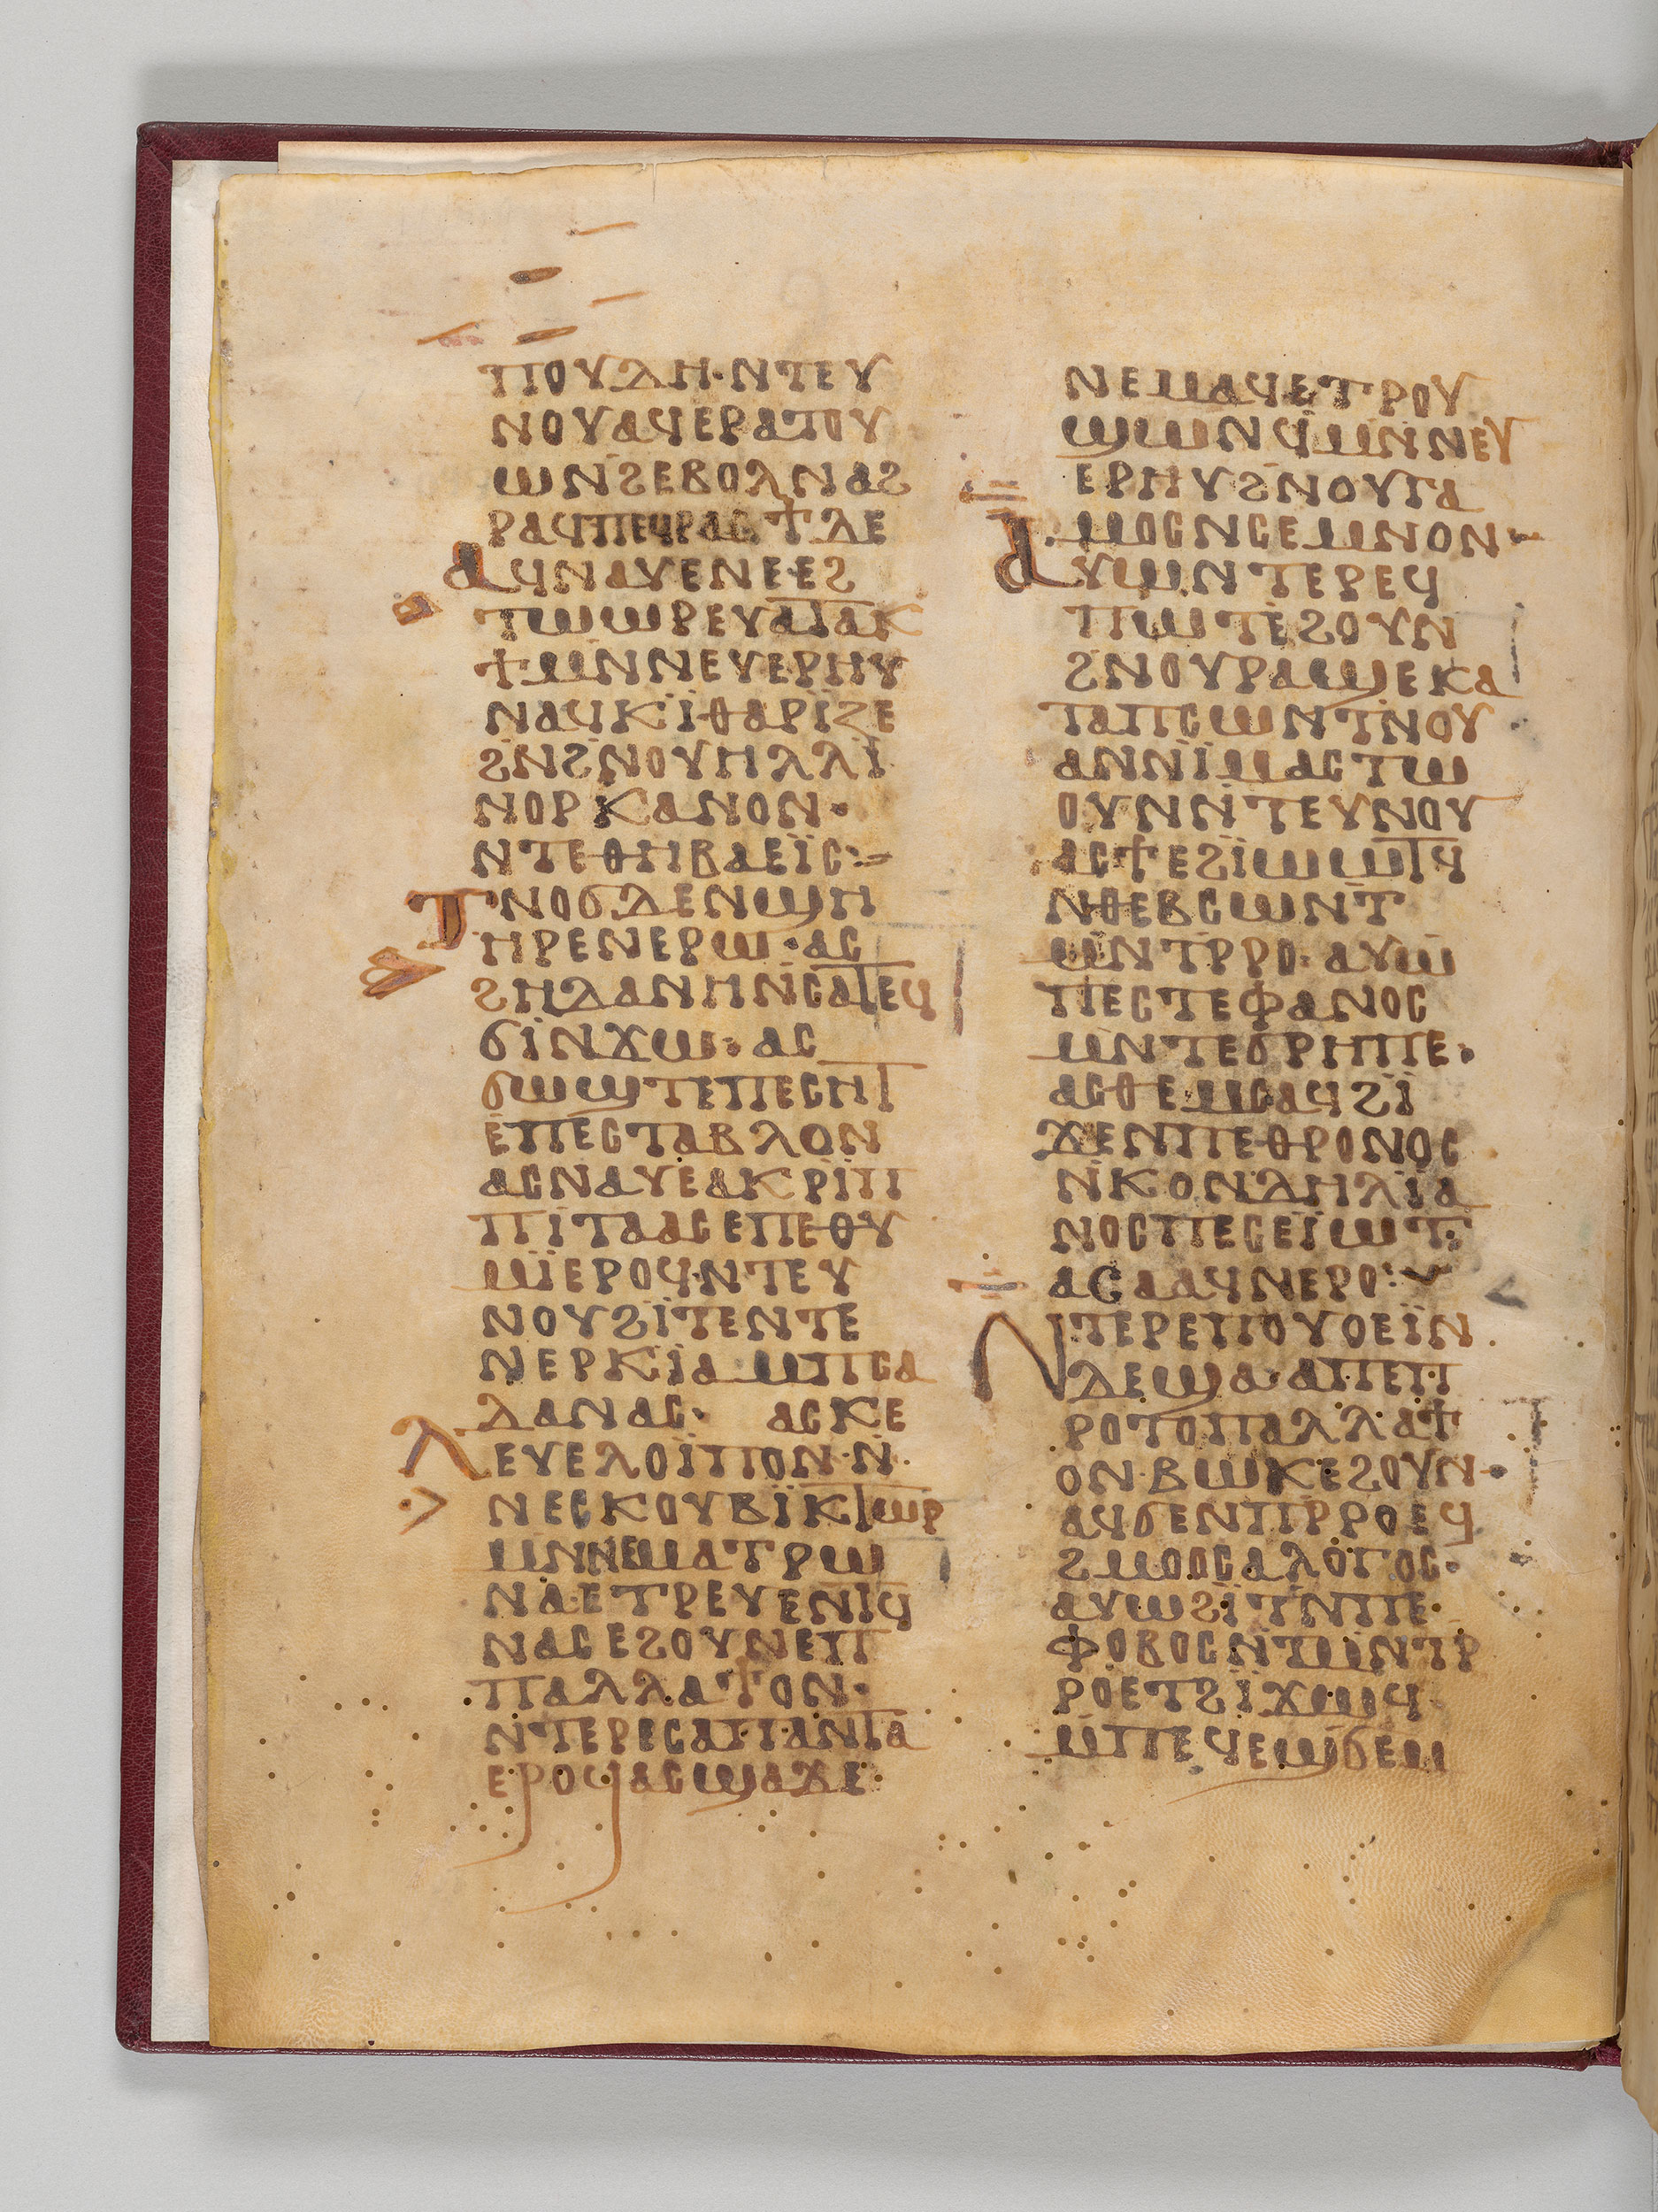 ⲡⲟⲩⲗⲏ·ⲛⲧⲉⲩ
ⲛⲟⲩⲁϥⲉⲣⲁⲧⲟⲩ
ⲱⲛϩⲉⲃⲟⲗⲛⲁϩ
ⲣⲁϥⲡⲉϥⲣⲁⲥϯⲇⲉ
ⲁϥⲛⲁⲩⲉⲛⲉ·ⲉϩ
ⲧⲱⲱⲣⲉⲩⲁⲧⲁⲕ
ϯⲙⲛⲛⲉⲩⲉⲣⲏⲩ
ⲛⲁϥⲕⲓ̈ⲑⲁⲣⲓϩⲉ
ϩⲛϩⲛⲟⲩⲏⲗⲗⲓ
ⲛⲟⲣⲕⲁⲛⲟⲛ·
ⲛⲧⲉⲑⲏⲃⲁⲉⲓ̈ⲥ:=
ⲧⲛⲟϭⲇⲉⲛϣⲏ
ⲏⲣⲉⲛⲉⲣⲱ·ⲁⲥ
ϩⲏⲇⲁⲛⲏⲛⲥⲁⲧⲉϥ
ϭⲓⲛϫⲱ:ⲁⲥ
ϭⲱϣⲧⲉⲡⲉⲥⲏⲧ
ⲉⲡⲉⲥⲧⲁⲃⲗⲟⲛ
ⲁⲥⲛⲁⲩⲉⲁⲕⲣⲓⲡ
ⲡⲓⲧⲁⲁⲥⲉⲡⲉⲑⲩ
ⲙⲓ̈ⲉⲣⲟϥ·ⲛⲧⲉⲩ
ⲛⲟⲩϩⲓⲧⲉⲛⲧⲉ
ⲛⲉⲣⲕⲓⲁⲙⲡⲥⲁ
ⲇⲁⲛⲁⲥ· ⲁⲥⲕⲉ
ⲗⲉⲩⲉⲗⲟⲓ̈ⲡⲟⲛ·ⲛ
ⲛⲉⲥⲕⲟⲩⲃⲓ̈ⲕⲧⲱⲣ
ⲙⲛⲛⲉⲙⲁⲧⲣⲱ
ⲛⲁ·ⲉⲧⲣⲉⲩⲉⲛⲧϥ
ⲛⲁⲥⲉϩⲟⲩⲛⲉⲡ
ⲡⲁⲗⲗⲁϯⲟⲛ·
ⲛⲧⲉⲣⲉⲥⲁⲡⲁⲛⲧⲁ
ⲉⲣⲟϥⲁⲥϣⲁϫⲉ·
ⲛⲉⲙⲁϥⲉⲧⲣⲟⲩ
ϣⲱⲛϥⲙⲛⲛⲉⲩ
ⲉⲣⲏⲩϩⲛⲟⲩⲅⲁ
ⲙⲟⲥⲛⲥⲉⲙⲛⲟⲛ·
ⲁⲩⲱⲛⲧⲉⲣⲉϥ
ⲡⲱⲧⲉϩⲟⲩⲛ
ϩⲛⲟⲩⲣⲁϣⲉⲕⲁ
ⲧⲁⲡⲥⲱⲛⲧⲛⲟⲩ
ⲁⲛⲛⲓ̈ⲙⲁⲥⲧⲱ
ⲟⲩⲛⲛⲧⲉⲩⲛⲟⲩ
ⲁⲥϯⲉϩⲓⲱⲱⲧϥ
ⲛⲑⲉⲃⲥⲱⲛⲧ
ⲙⲛⲧⲣⲣⲟ·ⲁⲩⲱ
ⲡⲉⲥⲧⲉⲫⲁⲛⲟⲥ
ⲙⲛⲧⲉϭⲣⲏⲡⲉ·
ⲁⲥⲑⲉⲙⲥⲁϥϩⲓ
ϫⲉⲛⲡⲉⲑⲣⲟⲛⲟⲥ
ⲛⲕⲟⲛⲇⲏⲗⲓⲁ
ⲛⲟⲥⲡⲉⲥⲉⲓⲱⲧ·
ⲁⲥⲁⲁϥⲛⲉⲣⲟ:
ⲛⲧⲉⲣⲉⲡⲟⲩⲟⲉⲓ̈ⲛ
ⲇⲉϣⲁ·ⲁⲡⲉⲡ
ⲣⲟⲧⲟⲡⲁⲗⲗⲁϯ
ⲟⲛ·ⲃⲱⲕⲉϩⲟⲩⲛ·
ⲁϥϭⲉⲛⲡⲣⲣⲟⲉϥ
ϩⲙⲟⲟⲥⲁⲗⲟⲅⲟⲥ·
ⲁⲩⲱϩⲓ̈ⲧⲛⲡⲉ·
ⲫⲟⲃⲟⲥⲛⲧⲙⲛⲧⲣ
ⲣⲟⲉⲧϩⲓ̈ϫⲱϥ
ⲙⲡⲉϥⲉϣϭⲉⲙ